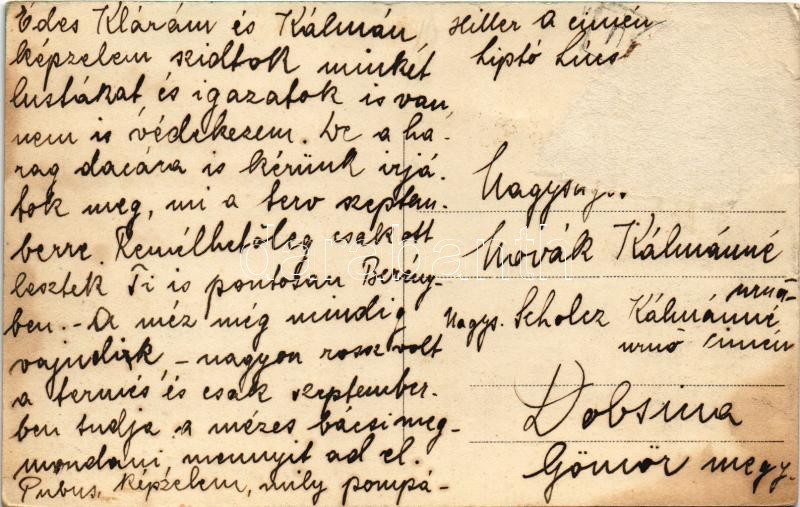 Édes Klárám és Kálmán
képzelem szidtok minket
lustákat, és igazatok is van,
nem is védekezem. De a ha-
rag dacára is kérünk irjá-
tok meg, mi a terv szeptem-
berre. Remélhetőleg csak ott
lesztek Ti is pontosan Berény-
ben. - A méz még mindig
vajudik - nagyon rossz volt
a termés és csak szeptember-
ben tudja a mézes bácsi meg-
mondani, mennyit ad el.
Pubus, képzelem, mily pompá-
Hiller a címén
Liptó Lúcs
Nagysag..
Novák Kálmánné
urnő
Nagys. Scholcz Kálmánné
urnő címén
Dobsina
Gömör megy.
darabanth